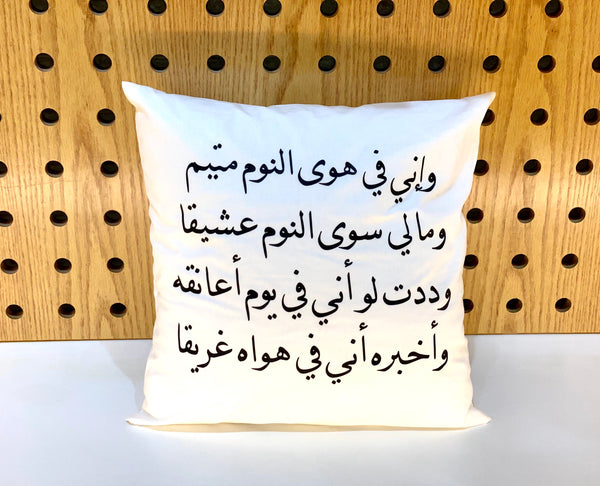 وإني في هوى النوم متيم
ومالي سوى النوم عشيقا
وددت لو أني في يوم أعانقه
وأخبره أني في هواه غريقا